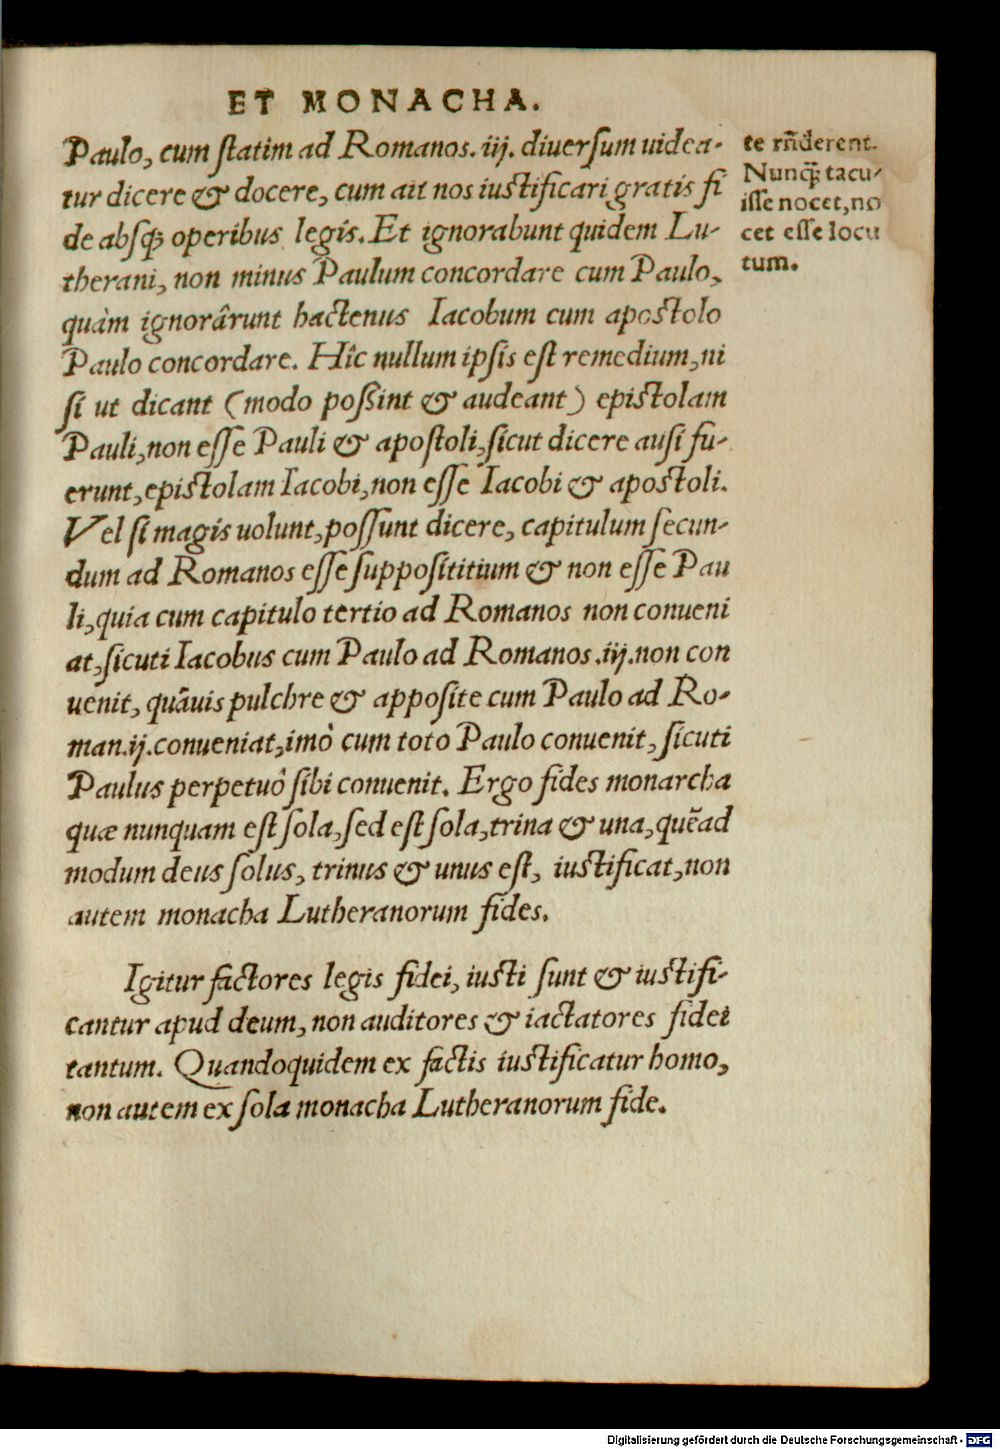 ET MONACHA.
Paulo, cum statim ad Romanos.iij. diuersum uidea-
tur dicere & docere, cum ait nos iustificari gratis fi
de absq́; operibus legis. Et ignorabunt quidem Lu-
therani, non minus Paulum concordare cum Paulo,
quàm ignorârunt hactenus Iacobum cum apostolo
Paulo concordare. Hîc nullum ipsis est remedium, ni
si ut dicant (modo possint & audeant) epistolam
Pauli, non esse Pauli & apostoli, sicut dicere ausi fu-
erunt, epistolam Iacobi, non esse Iacobi & apostoli.
Vel si magis uolunt, possunt dicere, capitulum secun-
dum ad Romanos esse supposititium & non esse Pau
li, quia cum capitulo tertio ad Romanos non conueni
at, sicuti Iacobus cum Paulo ad Romanos.iij.non con
uenit, quãuis pulchre & apposite cum Paulo ad Ro-
man.ij.conueniat, imò cum toto Paulo conuenit, sicuti
Paulus perpetuô sibi conuenit. Ergo fides monarcha
quæ nunquam est sola, sed est sola, trina & una, quẽad
modum deus solus, trinus & unus est, iustificat, non
autem monacha Lutheranorum fides.
Igitur factores legis fidei, iusti sunt & iustifi-
cantur apud deum, non auditores & iactatores fidei
tantum. Quandoquidem ex factis iustificatur homo,
non autem ex sola monacha Lutheranorum fide.
te rñderent.
Nunq̃; tacu-
isse nocet, no
cet esse locu
tum.
Digitalisierung gefördert durch die Deutsche Forschungsgemeinschaft - DFG